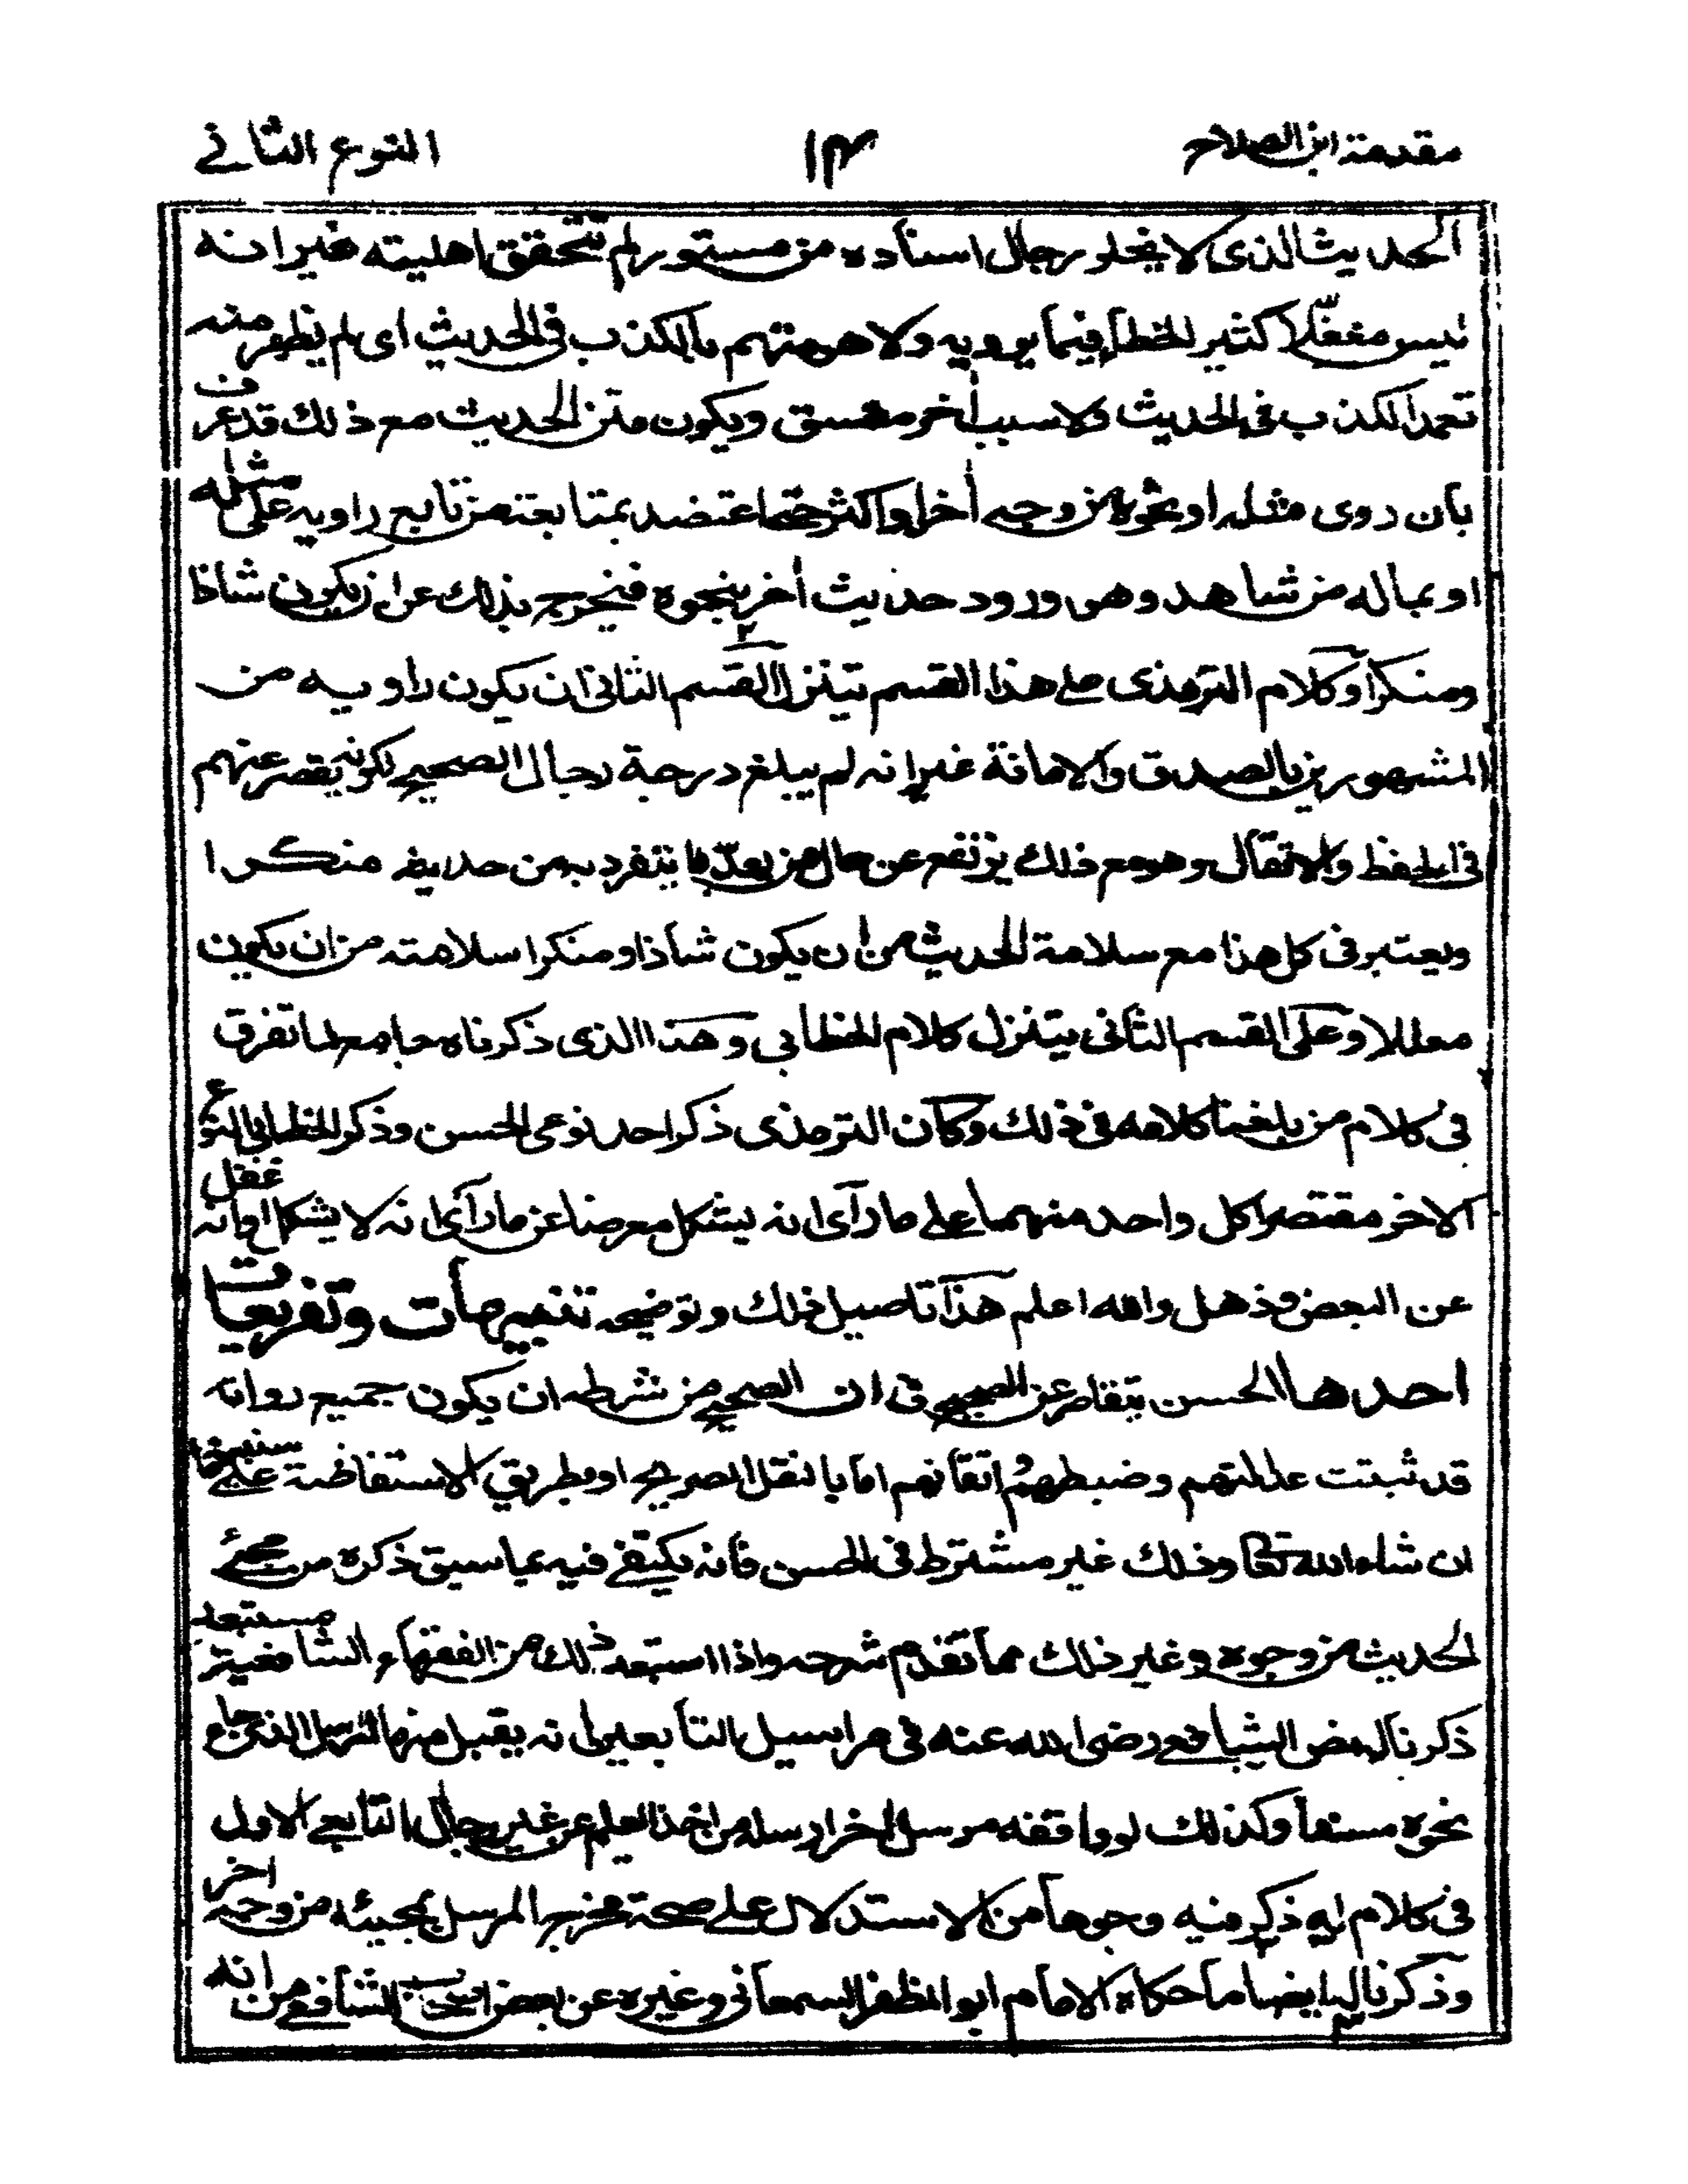 مقدمة ابن الصلاح
١٤
النوع الثاني
الحديث الذى لا يخلو رجال اسناده من مستور لم تتحقق اهليته غير انه
ليس مغفّلا كثير الخطأ فيما يرويه ولا هو متهم بالكذب فى الحديث اى لم يظهر منه
تعمد الكذب فى الحديث ولا سبب اخر مفسق ويكون متن الحديث مع ذلك قد عرف
بان روى مثله او نحوه من وجه اخر او اكثر حتى اعتضد بمتابعة من تابع راويه على مثله
او بماله من شاهد وهو ورود حديث اخر بنحوه فيخرج بذلك عن ان يكون شاذا
ومنكرا وكلام الترمذى على هذا القسم يتنزل القسم الثانى ان يكون راويه من
المشهورين بالصدق والامانة غير انه لم يبلغ درجة رجال الصحيح لكونه يقصر عنهم
فى الحفظ والاتقان وهو مع ذلك يرتفع عن حال من يعدّ ما ينفرد به من حديثه منكرا
ويعتبر فى كل هذا مع سلامة الحديث من ان يكون شاذا ومنكرا سلامته من ان يكون
معللا وعلى القسم الثانى يتنزل كلام الخطابى وهذا الذى ذكرناه جامع لما تفرق
فى كلام من بلغنا كلامه فى ذلك وكان الترمذى ذكر احد نوعى الحسن وذكر الخطابى النوع
الاخر مقتصرا كل واحد منهما على ما رآى انه يشكل معرضا عن ما رآى انه لا يشكل او انه غفل
عن البعض وذهل والله اعلم هذا تاصيل ذلك وتوضيحه تنبيهات وتفريعات
احدها الحسن يتقاصر عن الصحيح فى ان الصحيح من شرطه ان يكون جميع رواته
قد ثبتت عدالتهم وضبطهم واتقانهم اما بالنقل الصريح او بطريق الاستفاضة على ما سنبينه
ان شاء الله تعالى وذلك غير مشترط فى الحسن فانه يكتفى فيه بما سبق ذكره من مجئ
الحديث من وجوه وغير ذلك مما تقدم شرحه واذا استبعد ذلك من الفقهاء الشافعية مستبعد
ذكرنا له نص الشافعى رضى الله عنه فى مراسيل التابعين انه يقبل منها المرسل الذى جاء
نحوه مسندا وكذلك لو وافقه مرسل اخر ارسله من اخذ العلم عن غير رجال التابعى الاول
فى كلام له ذكر فيه وجوها من الاستدلال على صحة مخرج المرسل بمجيئه من وجه اخر
وذكرنا له ايضا ما حكاه الامام ابو المظفر السمعانى وغيره عن بعض اصحاب الشافعى من انه